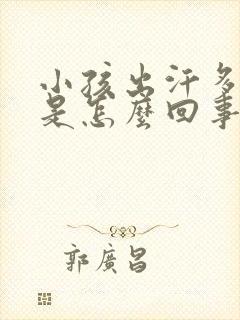 小孩出汗多
是怎麼回事
郭廣昌